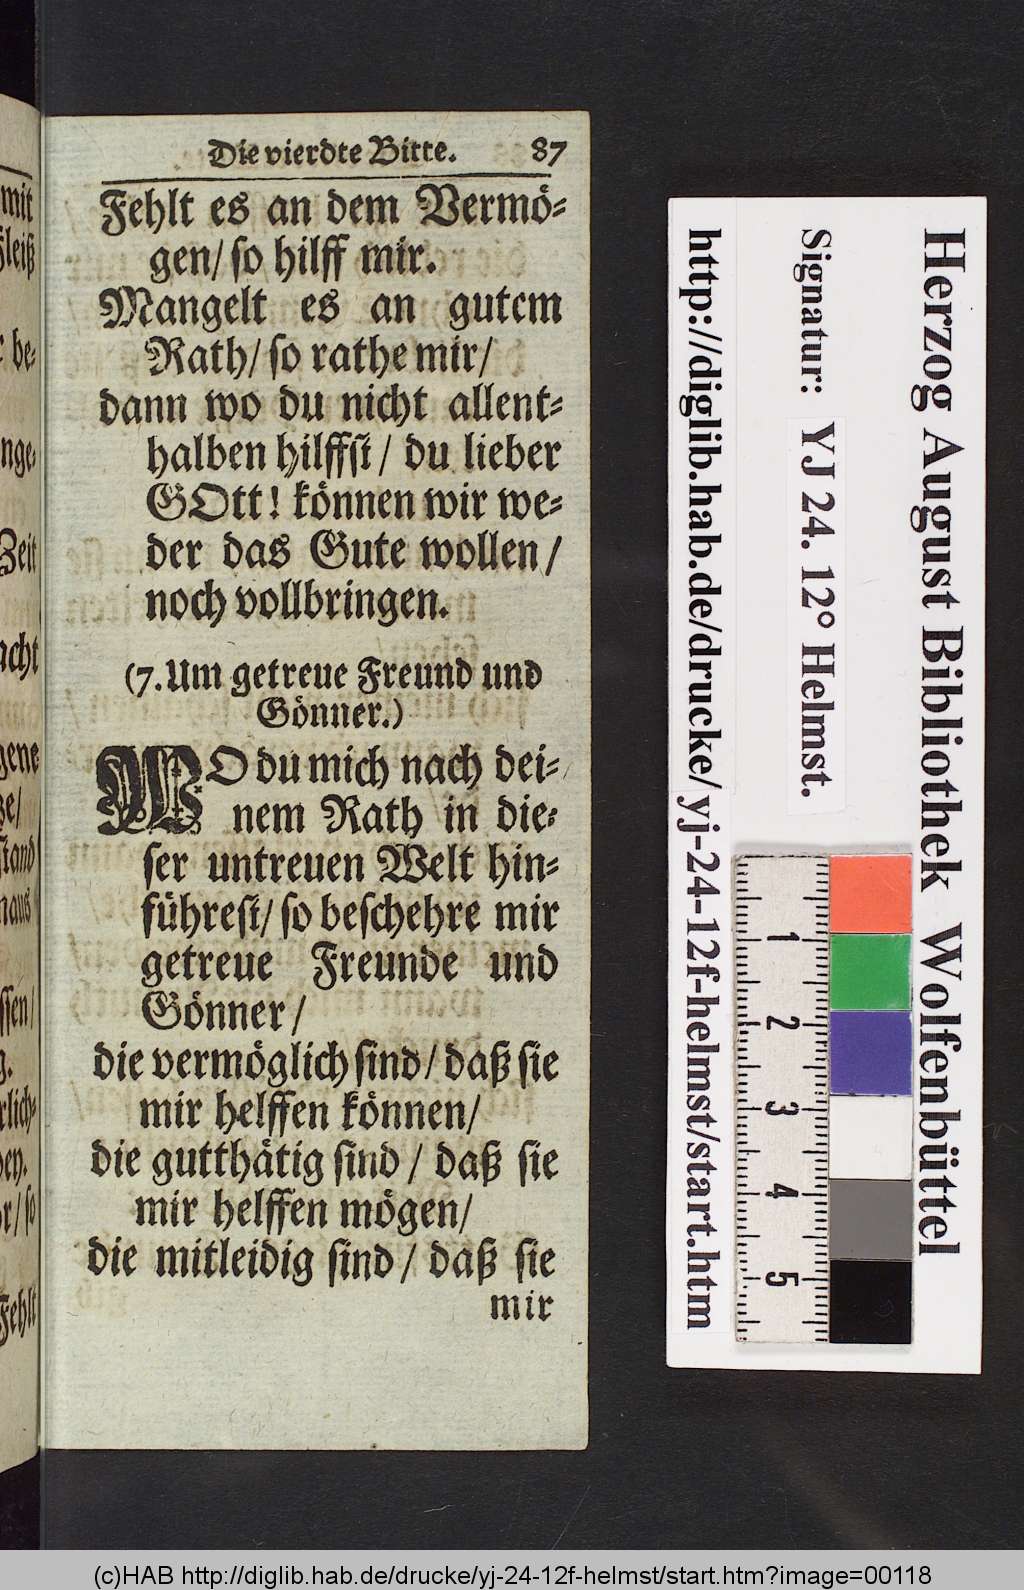 Die vierdte Bitte. 87
Fehlt es an dem Vermö-
gen/ so hilff mir.
Mangelt es an gutem
Rath/ so rathe mir/
dann wo du nicht allent-
halben hilffst/ du lieber
GOtt! können wir we-
der das Gute wollen/
noch vollbringen.
(7. Um getreue Freund und
Gönner.)
WO du mich nach dei-
nem Rath in die-
ser untreuen Welt hin-
führest/ so beschehre mir
getreue Freunde und
Gönner/
die vermöglich sind/ daß sie
mir helffen können/
die gutthätig sind/ daß sie
mir helffen mögen/
die mitleidig sind/ daß sie
mir
mit
be-
nge-
Zeit
acht
gene
stand
naus
ssen/
g.
rlich-
r/ so
Fehlt
Herzog August Bibliothek Wolfenbüttel
Signatur: YJ 24. 12° Helmst.
http://diglib.hab.de/drucke/yj-24-12f-helmst/start.htm
1
2
3
4
5
(c)HAB http://diglib.hab.de/drucke/yj-24-12f-helmst/start.htm?image=00118